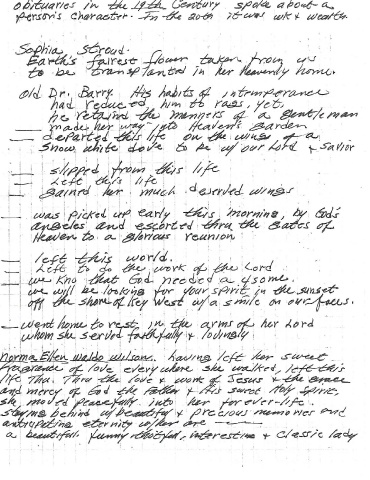 obituaries in the 19th Century spoke about a
person's character. In the 20th it was wk & wealth
Sophia Stroud.
Earth's fairest flower taken from us
to be transplanted in her heavenly home.
Old Dr. Barry His habits of intemperance
had reduced him to rags, yet,
he retained the manners of a gentleman
made her way into Heaven's Garden
departed this life on the wings of a
snow white dove to be w/ our Lord & Savior
slipped from this life
Left this life
gained her much deserved wings
was picked up early this morning, by God's
angels and escorted thru the Gates of
Heaven to a glorious reunion
left this world.
Left to do the work of the Lord
we kno that God needed a 4some.
we will be looking for your spirit in the sunset
off the shore of Key West w/ a smile on our faces.
went home to rest in the arms of her Lord
whom she served faithfully & lovingly
Norma Ellen Waldo Wilson. having left her sweet
fragrance of love everywhere she walked, left this
life Thu. Thru the love & work of Jesus & the grace
and mercy of God the Father & His sweet Holy Spirit,
she moved peacefully into her forever-life.
staying behind w/ beautiful & precious memories and
anticipating eternity w/ her are
a beautiful, funny, interesting & classic lady